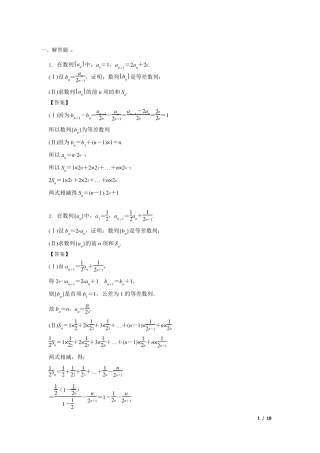 一、解答题：
1．在数列{aₙ}中，a₁＝1，aₙ₊₁＝2aₙ＋2ₙ．
(Ⅰ)设bₙ＝aₙ/2ₙ₋₁，证明：数列{bₙ}是等差数列；
(Ⅱ)求数列{aₙ}的前 n 项的和 Sₙ．
【答案】
(Ⅰ)因为bₙ₊₁－bₙ＝aₙ₊₁/2ₙ－aₙ/2ₙ₋₁＝(aₙ₊₁－2aₙ)/2ₙ＝2ₙ/2ₙ＝1
所以数列{bₙ}为等差数列
(Ⅱ)因为bₙ＝b₁＋(n－1)×1＝n
所以aₙ＝n·2ₙ₋₁
所以Sₙ＝1×20＋2×21＋…＋n×2ₙ₋₁
2Sₙ＝1×21＋2×22＋…＋n×2ₙ
两式相减得Sₙ＝(n－1)·2ₙ＋1
2．在数列{aₙ}中，a₁＝1/2，aₙ₊₁＝1/2aₙ＋1/2ₙ₊₁．
(Ⅰ)设bₙ＝2ₙaₙ，证明：数列{bₙ}是等差数列；
(Ⅱ)求数列{aₙ}的前 n 项和Sₙ．
【答案】
(Ⅰ)由aₙ₊₁＝1/2aₙ＋1/2ₙ₊₁，
得 2ₙ₊₁aₙ₊₁＝2ₙaₙ＋1 bₙ₊₁＝bₙ＋1，
则{bₙ}是首项b₁＝1，公差为 1 的等差数列．
故bₙ＝n，aₙ＝n/2ₙ
(Ⅱ)Sₙ＝1×1/2＋2×1/22＋3×1/23＋…＋(n－1)×1/2ₙ₋₁＋n×1/2ₙ
1/2Sₙ＝1×1/22＋2×1/23＋…＋(n－1)×1/2ₙ＋n×1/2ₙ₊₁
两式相减，得：
1/2Sₙ＝1/2＋1/22＋1/23＋…＋1/2ₙ－n/2ₙ₊₁
＝1/2(1－1/2ₙ)/(1－1/2)－n/2ₙ₊₁＝1－1/2ₙ－n/2ₙ₊₁
1 / 18